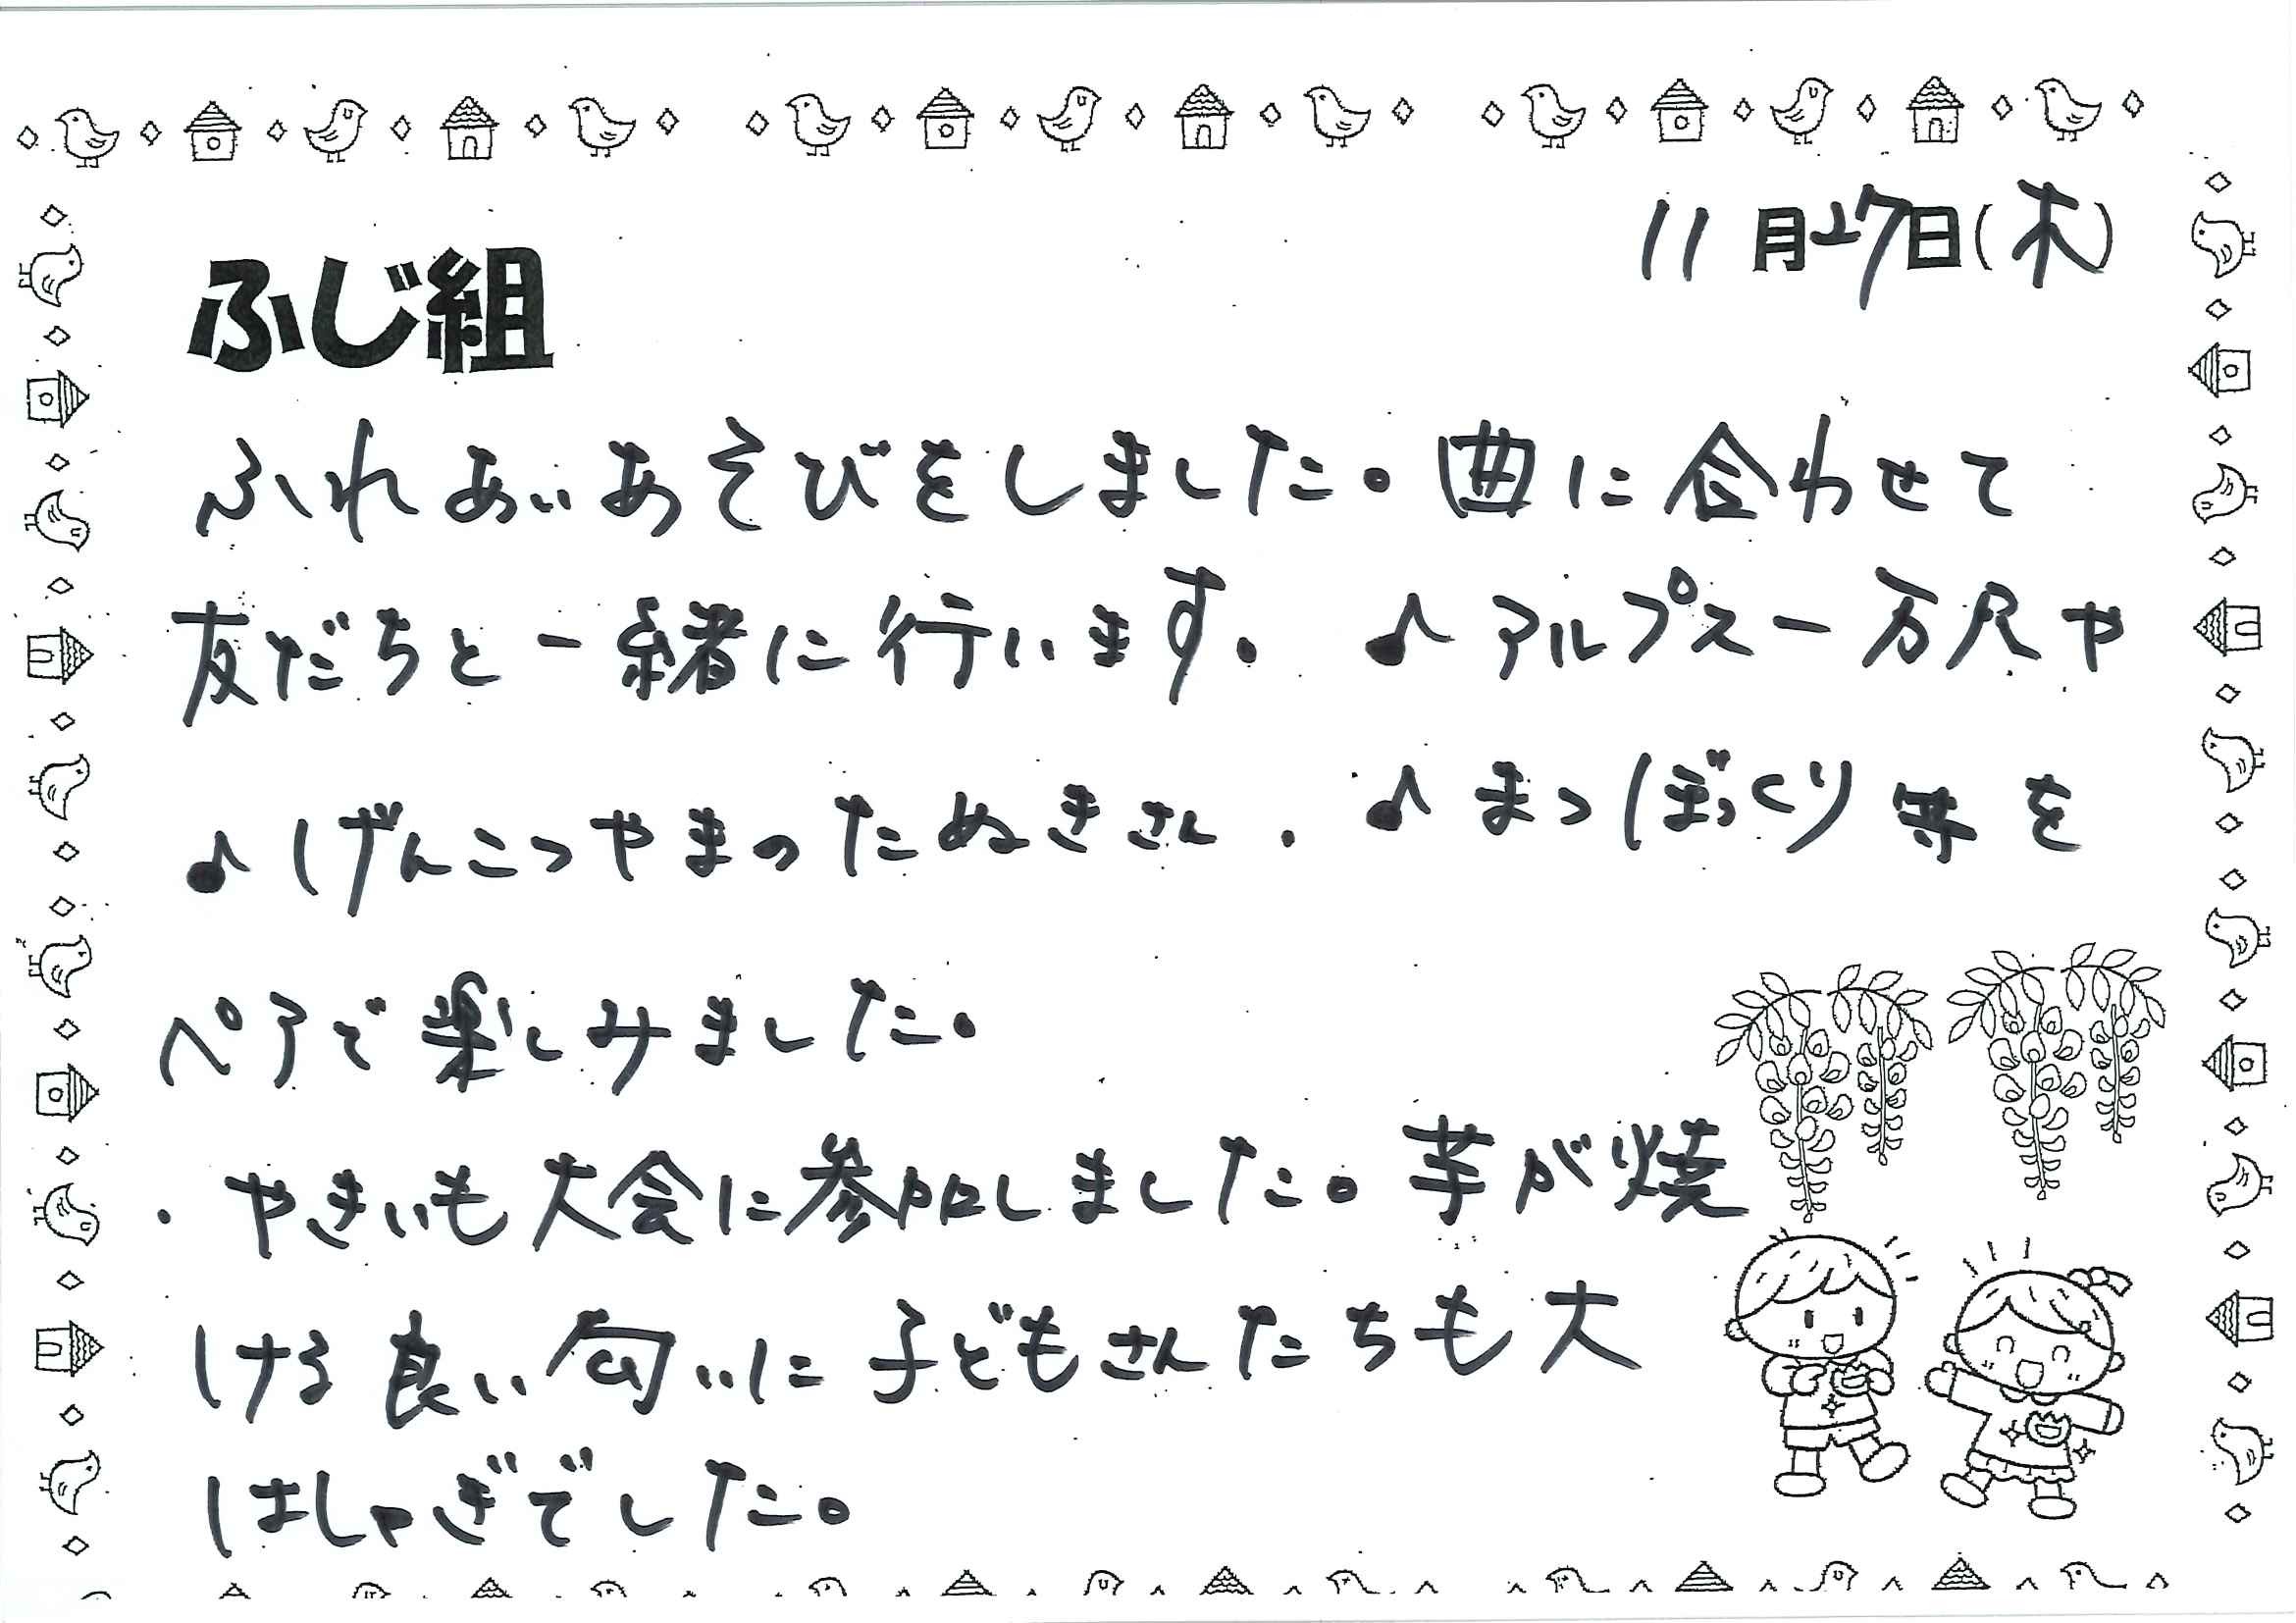 11月27日(木)
ふじ組
ふれあいあそびをしました。曲に合わせて
友だちと一緒に行います。♪アルプス一万尺や
♪げんこつやまのたぬきさん.♪まつぼっくり 等を
ペアで楽しみました。
・やきいも大会に参加しました。芋が焼
ける良い匂いに子どもさんたちも大
はしゃぎでした。